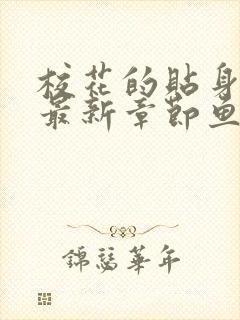 校花的貼身
最新章節魚
錦瑟華年